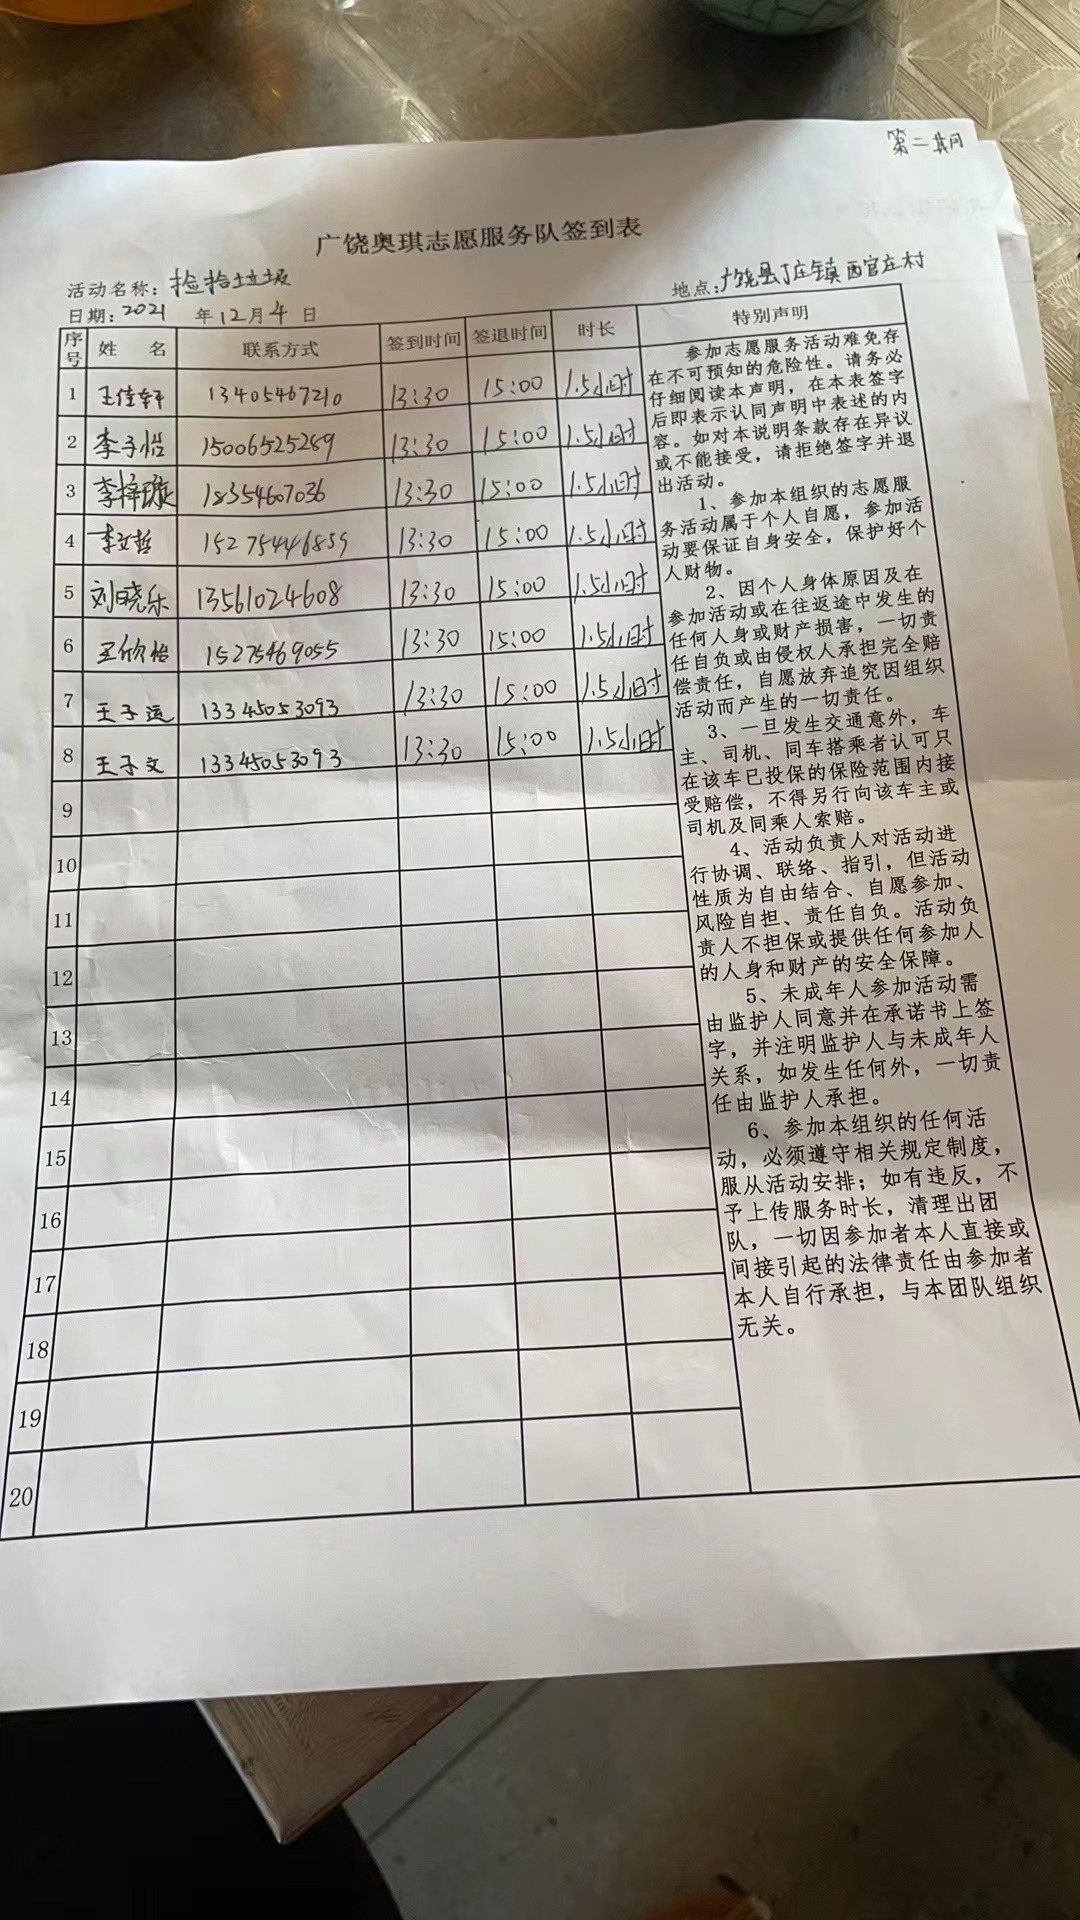 第二期
广饶奥琪志愿服务队签到表
活动名称：捡拾垃圾
地点：广饶县丁庄镇西官庄村
日期：2021 年 12月 4 日
序号 姓 名 联系方式 签到时间 签退时间 时长 特别声明
1 王佳轩 13405467210 13:30 15:00 1.5小时
2 李子怡 15006525289 13:30 15:00 1.5小时
3 李梓璇 18354607036 13:30 15:00 1.5小时
4 李文哲 15275446859 13:30 15:00 1.5小时
5 刘晓乐 13561024608 13:30 15:00 1.5小时
6 王欣怡 15275469055 13:30 15:00 1.5小时
7 王子运 13345053093 13:30 15:00 1.5小时
8 王子文 13345053093 13:30 15:00 1.5小时
9
10
11
12
13
14
15
16
17
18
19
20
参加志愿服务活动难免存
在不可预知的危险性。请务必
仔细阅读本声明，在本表签字
后即表示认同声明中表述的内
容。如对本说明条款存在异议
或不能接受，请拒绝签字并退
出活动。
1、参加本组织的志愿服
务活动属于个人自愿，参加活
动要保证自身安全，保护好个
人财物。
2、因个人身体原因及在
参加活动或在往返途中发生的
任何人身或财产损害，一切责
任自负或由侵权人承担完全赔
偿责任，自愿放弃追究因组织
活动而产生的一切责任。
3、一旦发生交通意外，车
主、司机、同车搭乘者认可只
在该车已投保的保险范围内接
受赔偿，不得另行向该车主或
司机及同乘人索赔。
4、活动负责人对活动进
行协调、联络、指引，但活动
性质为自由结合、自愿参加、
风险自担、责任自负。活动负
责人不担保或提供任何参加人
的人身和财产的安全保障。
5、未成年人参加活动需
由监护人同意并在承诺书上签
字，并注明监护人与未成年人
关系，如发生任何外，一切责
任由监护人承担。
6、参加本组织的任何活
动，必须遵守相关规定制度，
服从活动安排；如有违反，不
予上传服务时长，清理出团
队，一切因参加者本人直接或
间接引起的法律责任由参加者
本人自行承担，与本团队组织
无关。